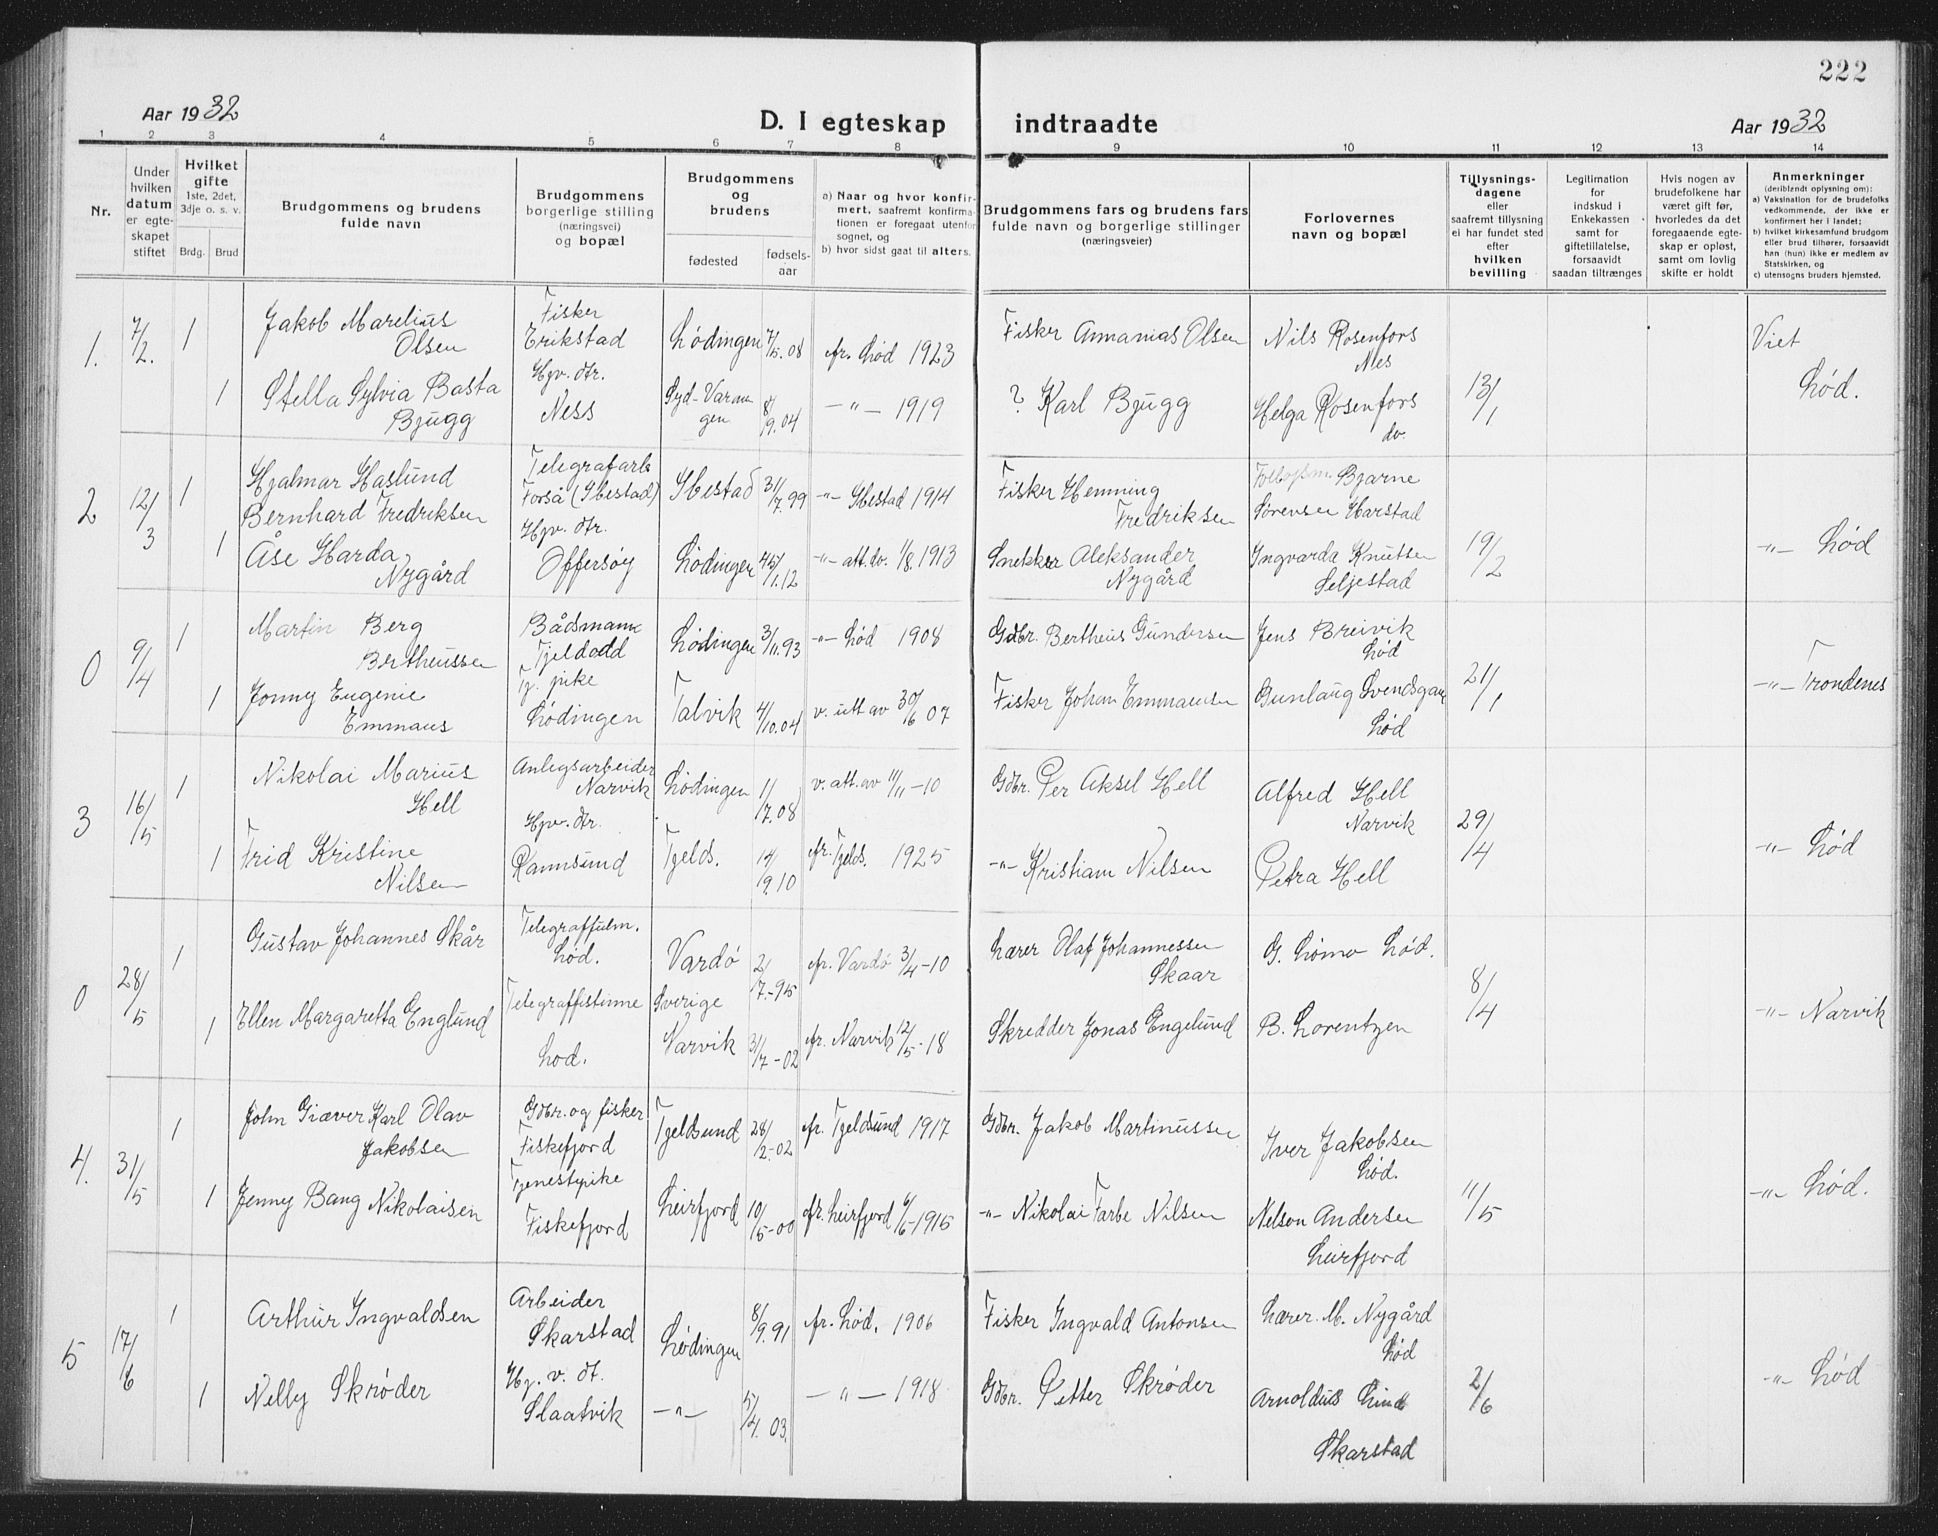 222
Aar 1932
D. I egteskap indtraadte
Aar 1932
1 2 3 4 5 6 7 8 9 10 11 12 13 14
Nr.
Under hvilken datum er egteskapet stiftet
Hvilket gifte
1ste, 2det, 3dje o. s. v.
Brdg. Brud
Brudgommens og brudens fulde navn
Brudgommens borgerlige stilling (næringsvei) og bopæl
Brudgommens og brudens
fødested
fødselsaar
a) Naar og hvor konfirmert, saafremt konfirmationen er foregaat utenfor sognet, og
b) hvor sidst gaat til alters.
Brudgommens fars og brudens fars fulde navn og borgerlige stillinger (næringsveier)
Forlovernes navn og bopæl
Tillysningsdagene eller saafremt tillysning ei har fundet sted efter hvilken bevilling
Legitimation for indskud i Enkekassen samt for giftetillatelse, forsaavidt saadan tiltrænges
Hvis nogen av brudefolkene har været gift før, hvorledes da det foregaaende egteskap er opløst, samt om lovlig skifte er holdt
Anmerkninger
(deriblandt oplysning om):
a) Vaksination for de brudefolks vedkommende, der ikke er konfirmert her i landet;
b) hvilket kirkesamfund brudgom eller brud tilhører, forsaavidt han (hun) ikke er medlem av Statskirken, og
c) utensogns bruders hjemsted.
1. 7/2. 1 Jakob Marelius Olsen Fisker Erikstad Lödingen 7/5.08 fr. Lød 1923 Fisker Annanias Olsen Nils Rosenfors Nes 13/1 Viet Lød.
1 Stella Sylvia Basta Bjugg Hgv. dtr. Ness Syd-Varangen 8/9.04 -"- 1919 ? Karl Bjugg Helga Rosenfors do.
2 12/3 1 Hjalmar Haslund Bernhard Fredriksen Telegrafarb. Forså (Ibestad) Ibestad 31/7.99 -"- Ibestad 1914 Fisker Hemming Fredriksen Bjarne Sørensen Harstad 19/2 -"- Lød
1 Åse Harda Nygård Hgv. dtr. Offersøy Lødingen /1.12 -"- att. av. 1/8.1913 Snekker Aleksander Nygård Ingvarda Knutsen Seljestad
0 9/4 1 Martin Berg Bertheussen Bådsmann Tjeldodd Lødingen 3/11.93 -"- Lød 1908 Gdbr. Bertheus Gundersen Jens Breivik Lød 21/1 -"- Trondenes
1 Jonny Eugenie Emmaus Tj. pike Lødingen Talvik 4/10.04 v. att av 30/6 07 Fisker Johan Emmausen Gunlaug Lød
3 16/5 1 Nikolai Marius Hell Anlegsarbeider Narvik Lødingen 11/7.08 v. att. av 11/11-10 Gdbr. Per Aksel Hell Alfred Hell Narvik 29/4 -"- Lød
1 Frid Kristine Nilsen Hgv. dtr. Ramsund Tjelds. 14/9.10 fr. Tjelds. 1925 -"- Kristian Nilsen Petra Hell
0 28/5 1 Gustav Johannes Skår Telegraffulm. Lød. Vardø 2/7.-95 fr. Vardø 3/4-10 Lærer Olaf Johannessen Skaar G. Lømo Lød. 8/4 -"- Narvik
1 Ellen Margaretta Englund Telegrafistinne Lød. Sverige Narvik 31/7-02 fr. Narvik 12/5-18 Skredder Jonas Engelund B. Lorentzen
4. 31/5 1 John Giæver Karl Olav Jakobsen Gdbr. og fisker Fiskefjord Tjeldsund 28/2.-02 fr. Tjeldsund 1917 Gdbr. Jakob Martinussen Iver Jakobsen Lød. 11/5 -"- Lød.
1 Jenny Bang Nikolaisen Tjenestepike Fiskefjord Leirfjord 10/5-00 fr. Leirfjord 6/6-1915 -"- Nikolai Farbe Nilsen Nelson Andersen Leirfjord
5 17/6 1 Arthur Ingvaldsen Arbeider Skarstad Lødingen 8/9.91 fr. Lød. 1906 Fisker Ingvald Antonsen Lærer M. Nygård Lød 2/6 -"- Lød
1 Nelly Skrøder Hg. v. dt. Slaatvik -"- 5/4. 03. -"- 1918 Gdbr. Petter Skrøder Arnoldus Lind Skarstad